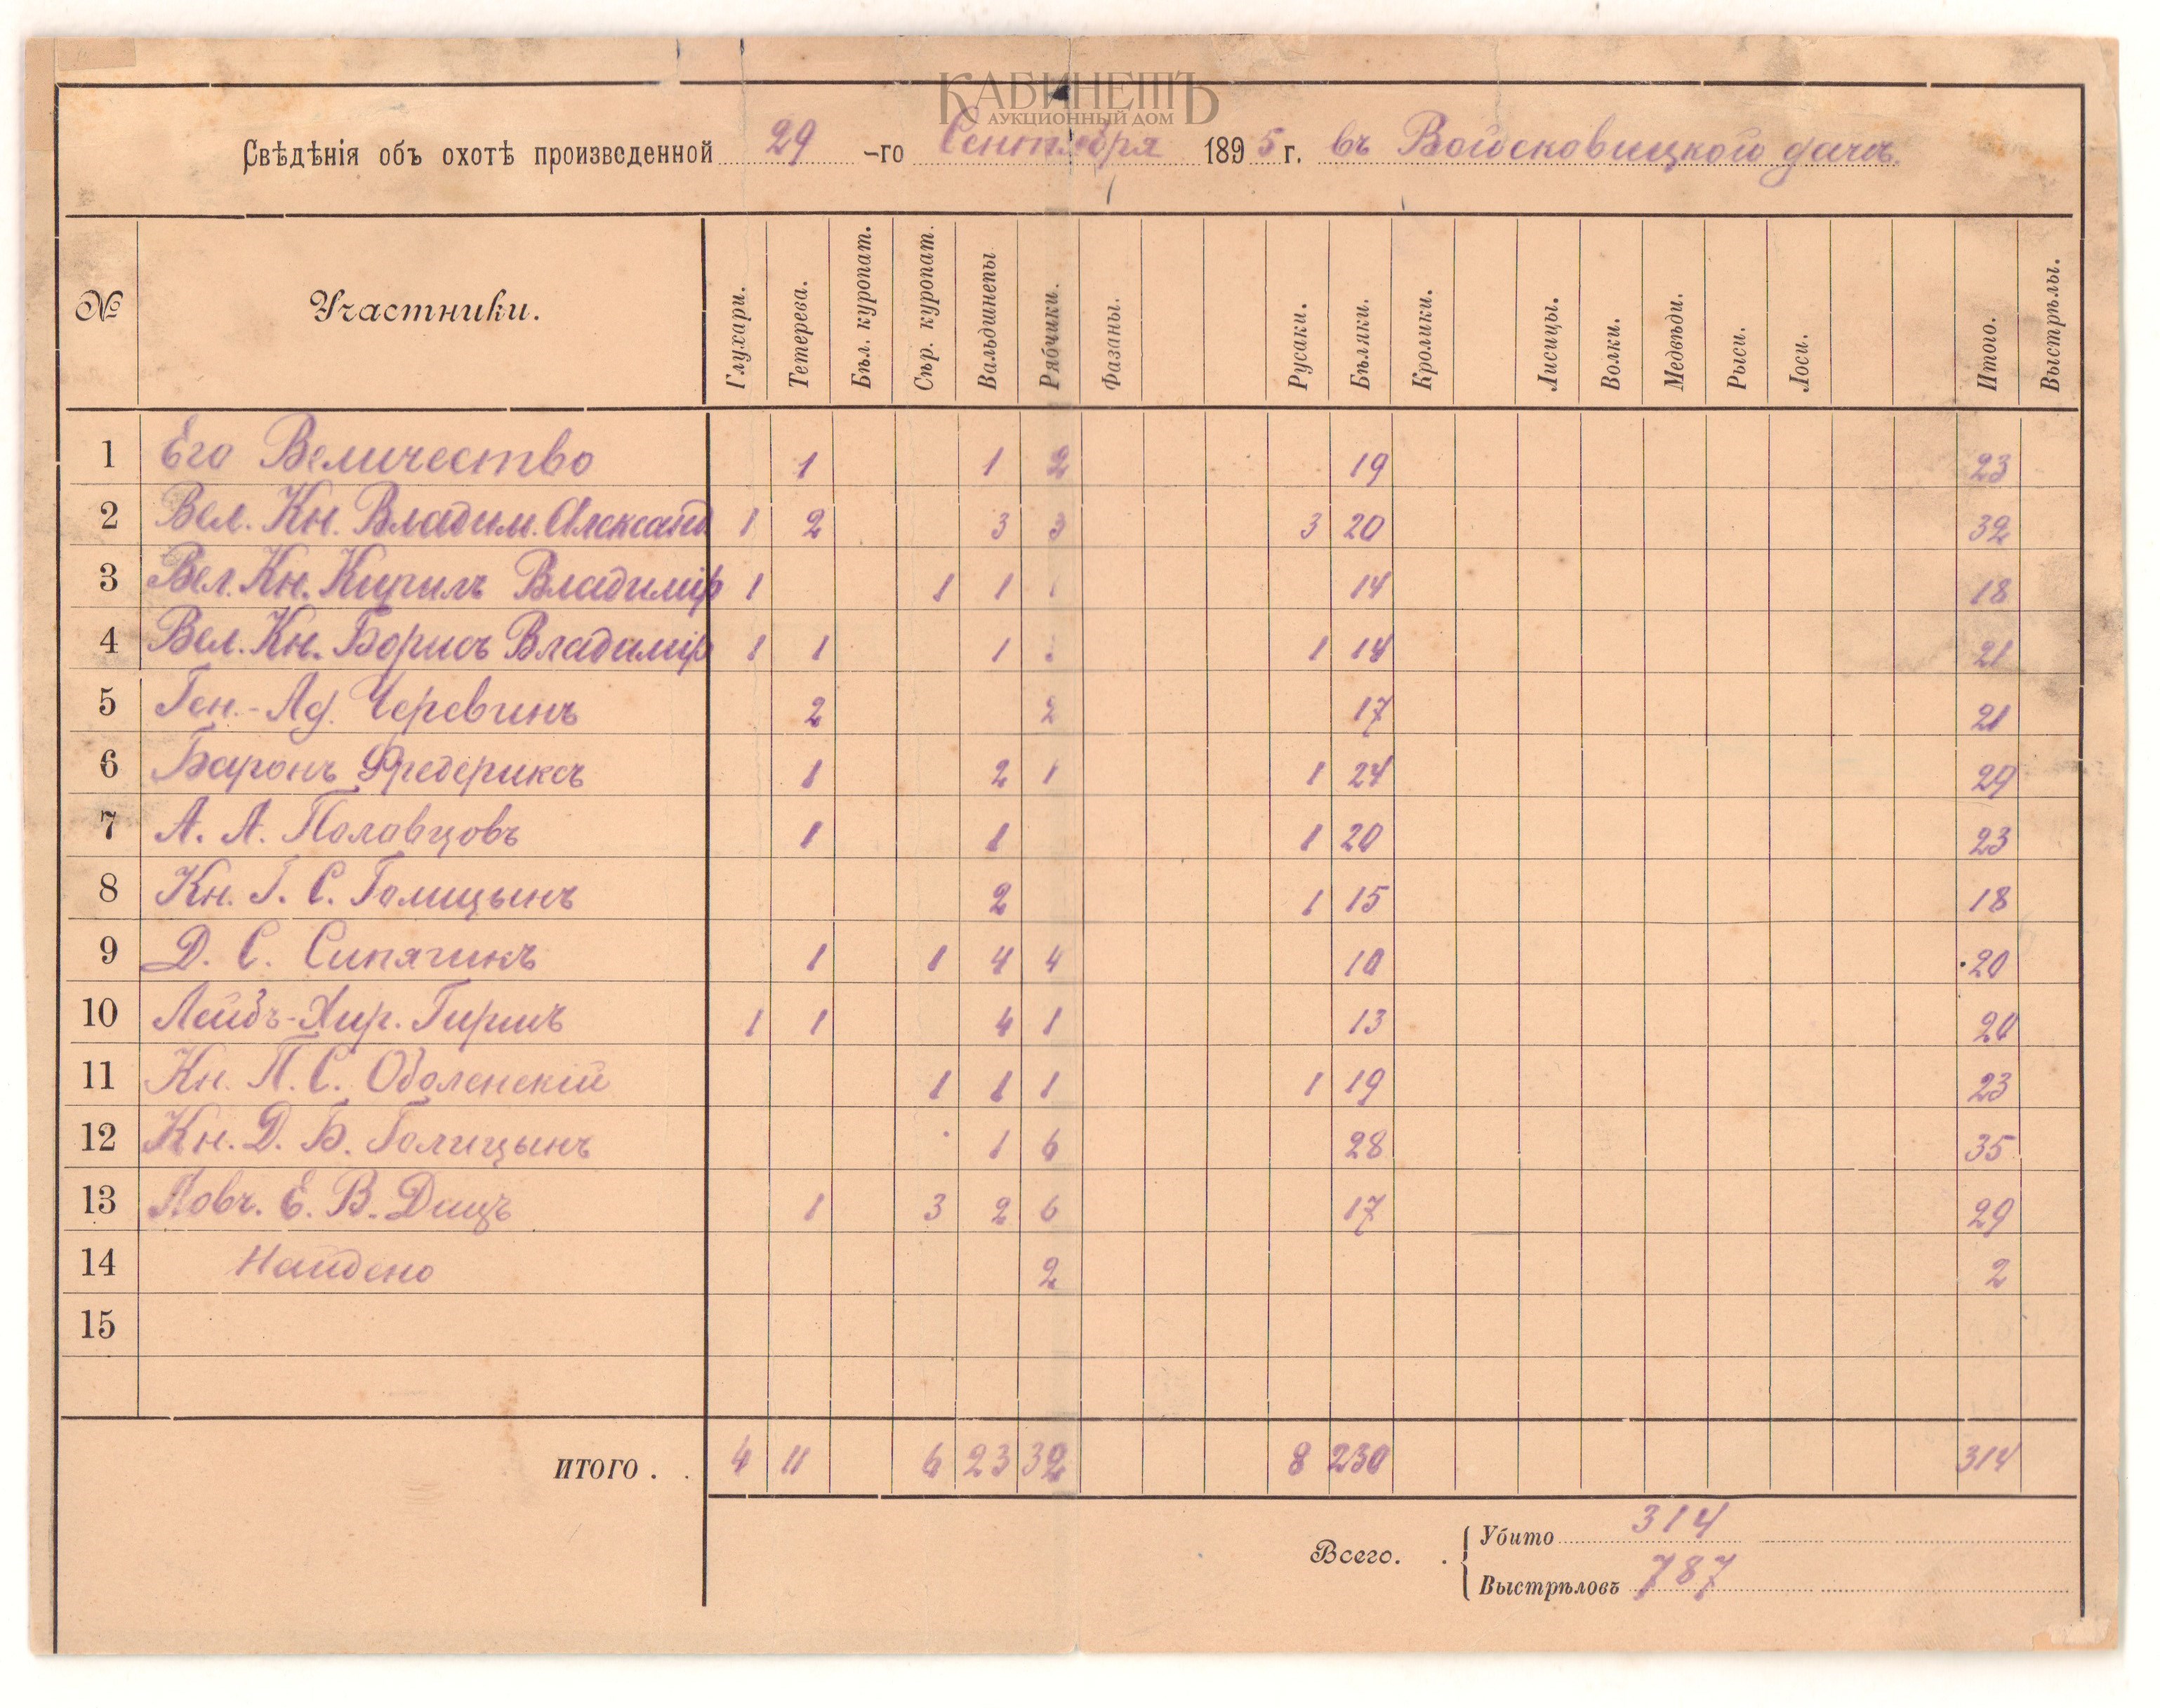 КАБИНЕТЪ
АУКЦИОННЫЙ ДОМ
Свѣдѣнія объ охотѣ произведенной 29 -го Сентября 1895 г. въ Войсковицкой дачѣ.
№ Участники. Глухари. Тетерева. Бѣл. куропат. Сѣр. куропат. Вальдшнепы Рябчики. Фазаны. Русаки. Бѣляки. Кролики. Лисицы. Волки. Медвѣди. Рыси. Лоси. Итого. Выстрѣлы.
1 Его Величество 1 1 2 19 23
2 Вел. Кн. Владим. Александ 1 2 3 3 3 20 32
3 Вел. Кн. Кирилъ Владимір 1 1 1 1 14 18
4 Вел. Кн. Борисъ Владимір 1 1 1 1 14 21
5 Ген.-Ад. Черевинъ 2 2 17 21
6 Баронъ Фредериксъ 1 2 1 1 24 29
7 А. А. Половцовъ 1 1 1 20 23
8 Кн. Г. С. Голицынъ 2 1 15 18
9 Д. С. Сипягинъ 1 1 4 4 10 20
10 Лейбъ-Хир. Гиршъ 1 1 4 1 13 20
11 Кн. П. С. Оболенскій 1 1 1 1 19 23
12 Кн. Д. Б. Голицынъ 1 6 28 35
13 Ловч. Е. В. Дицъ 1 3 2 6 17 29
14 Найдено 2 2
15
ИТОГО . . 4 11 6 23 32 8 230 314
Всего. . Убито 314
Выстрѣловъ 787